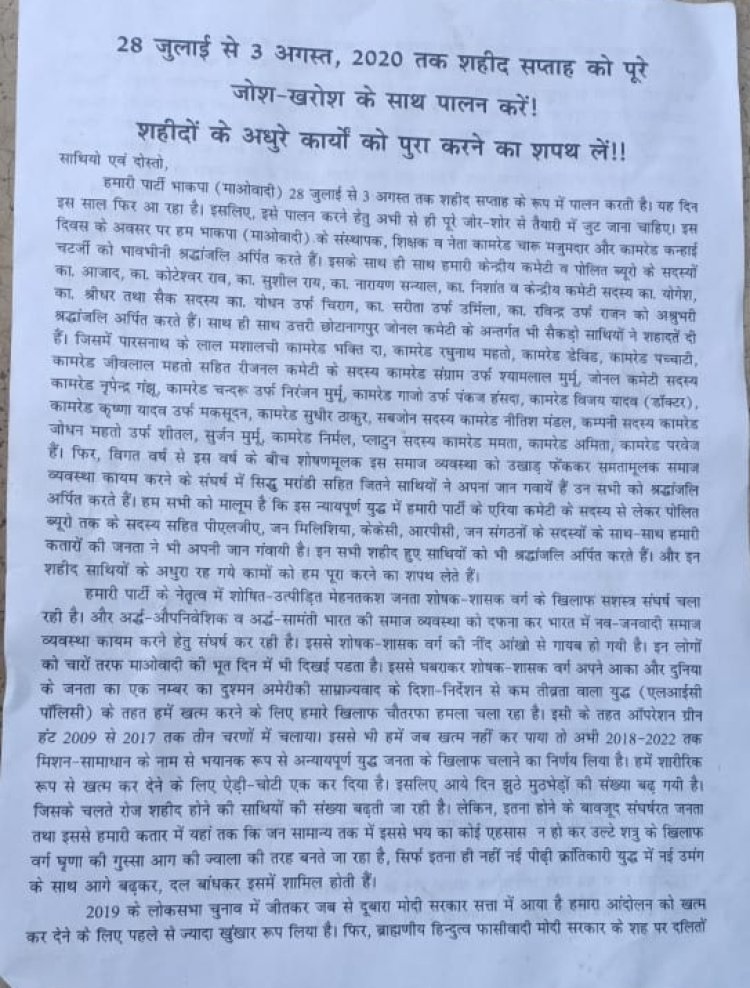 28 जुलाई से 3 अगस्त, 2020 तक शहीद सप्ताह को पूरे
जोश-खरोश के साथ पालन करें!
शहीदों के अधुरे कार्यों को पुरा करने का शपथ लें!!
साथियो एवं दोस्तो,
हमारी पार्टी भाकपा (माओवादी) 28 जुलाई से 3 अगस्त तक शहीद सप्ताह के रूप में पालन करती है। यह दिन
इस साल फिर आ रहा है। इसलिए, इसे पालन करने हेतु अभी से ही पूरे जोर-शोर से तैयारी में जुट जाना चाहिए। इस
दिवस के अवसर पर हम भाकपा (माओवादी) के संस्थापक, शिक्षक व नेता कामरेड चारू मजुमदार और कामरेड कन्हाई
चटर्जी को भावभीनी श्रद्धांजलि अर्पित करते हैं। इसके साथ ही साथ हमारी केन्द्रीय कमेटी व पोलित ब्यूरो के सदस्यों
का. आजाद, का. कोटेश्वर राव, का. सुशील राय, का. नारायण सन्याल, का. निशांत व केन्द्रीय कमेटी सदस्य का. योगेश,
का. श्रीधर तथा सैक सदस्य का. योधन उर्फ चिराग, का. सरीता उर्फ उर्मिला, का. रविन्द्र उर्फ राजन को अश्रुभरी
श्रद्धांजलि अर्पित करते हैं। साथ ही साथ उत्तरी छोटानागपुर जोनल कमेटी के अन्तर्गत भी सैकड़ो साथियों ने शहादतें दी
हैं। जिसमें पारसनाथ के लाल मशालची कामरेड भक्ति दा, कामरेड रघुनाथ महतो, कामरेड डेविड, कामरेड पच्चाटी,
कामरेड जीवलाल महतो सहित रीजनल कमेटी के सदस्य कामरेड संग्राम उर्फ श्यामलाल मुर्मू, जोनल कमेटी सदस्य
कामरेड नृपेन्द्र गंझू, कामरेड चन्दरू उर्फ निरंजन मुर्मू, कामरेड गाजो उर्फ पंकज हंसदा, कामरेड विजय यादव (डॉक्टर),
कामरेड कृष्णा यादव उर्फ मकसूदन, कामरेड सुधीर ठाकुर, सबजोन सदस्य कामरेड नीतिश मंडल, कम्पनी सदस्य कामरेड
जोधन महतो उर्फ शीतल, सुर्जन मुर्मू, कामरेड निर्मल, प्लाटुन सदस्य कामरेड ममता, कामरेड अमिता, कामरेड परवेज
हैं। फिर, विगत वर्ष से इस वर्ष के बीच शोषणमूलक इस समाज व्यवस्था को उखाड़ फेंककर समतामूलक समाज
व्यवस्था कायम करने के संघर्ष में सिद्धु मरांडी सहित जितने साथियों ने अपना जान गवायें हैं उन सभी को श्रद्धांजलि
अर्पित करते हैं। हम सभी को मालूम है कि इस न्यायपूर्ण युद्ध में हमारी पार्टी के एरिया कमेटी के सदस्य से लेकर पोलित
ब्यूरो तक के सदस्य सहित पीएलजीए, जन मिलिशिया, केकेसी, आरपीसी, जन संगठनों के सदस्यों के साथ-साथ हमारी
कतारों की जनता ने भी अपनी जान गंवायी है। इन सभी शहीद हुए साथियों को भी श्रद्धांजलि अर्पित करते हैं। और इन
शहीद साथियों के अधुरा रह गये कामों को हम पूरा करने का शपथ लेते हैं।
हमारी पार्टी के नेतृत्व में शोषित-उत्पीड़ित मेहनतकश जनता शोषक-शासक वर्ग के खिलाफ सशस्त्र संघर्ष चला
रही है। और अर्द्ध-औपनिवेशिक व अर्द्ध-सामंती भारत की समाज व्यवस्था को दफना कर भारत में नव-जनवादी समाज
व्यवस्था कायम करने हेतु संघर्ष कर रही है। इससे शोषक-शासक वर्ग की नींद आंखो से गायब हो गयी है। इन लोगों
को चारों तरफ माओवादी की भूत दिन में भी दिखई पडता है। इससे घबराकर शोषक-शासक वर्ग अपने आका और दुनिया
के जनता का एक नम्बर का दुश्मन अमेरीकी साम्राज्यवाद के दिशा-निर्देशन से कम तीव्रता वाला युद्ध (एलआईसी
पॉलिसी) के तहत हमें खत्म करने के लिए हमारे खिलाफ चौतरफा हमला चला रहा है। इसी के तहत ऑपरेशन ग्रीन
हंट 2009 से 2017 तक तीन चरणों में चलाया। इससे भी हमें जब खत्म नहीं कर पाया तो अभी 2018-2022 तक
मिशन-सामाधान के नाम से भयानक रूप से अन्यायपूर्ण युद्ध जनता के खिलाफ चलाने का निर्णय लिया है। हमें शारीरिक
रूप से खत्म कर देने के लिए ऐड़ी-चोटी एक कर दिया है। इसलिए आये दिन झुठे मुठभेड़ों की संख्या बढ़ गयी है।
जिसके चलते रोज शहीद होने की साथियों की संख्या बढ़ती जा रही है। लेकिन, इतना होने के बावजूद संघर्षरत जनता
तथा इससे हमारी कतार में यहां तक कि जन सामान्य तक में इससे भय का कोई एहसास न हो कर उल्टे शत्रु के खिलाफ
वर्ग घृणा की गुस्सा आग की ज्वाला की तरह बनते जा रहा है, सिर्फ इतना ही नहीं नई पीढ़ी क्रांतिकारी युद्ध में नई उमंग
के साथ आगे बढ़कर, दल बांधकर इसमें शामिल होती हैं।
2019 के लोकसभा चुनाव में जीतकर जब से दूबारा मोदी सरकार सत्ता में आया है हमारा आंदोलन को खत्म
कर देने के लिए पहले से ज्यादा खुंखार रूप लिया है। फिर, ब्राह्मणीय हिन्दुत्व फासीवादी मोदी सरकार के शह पर दलितों